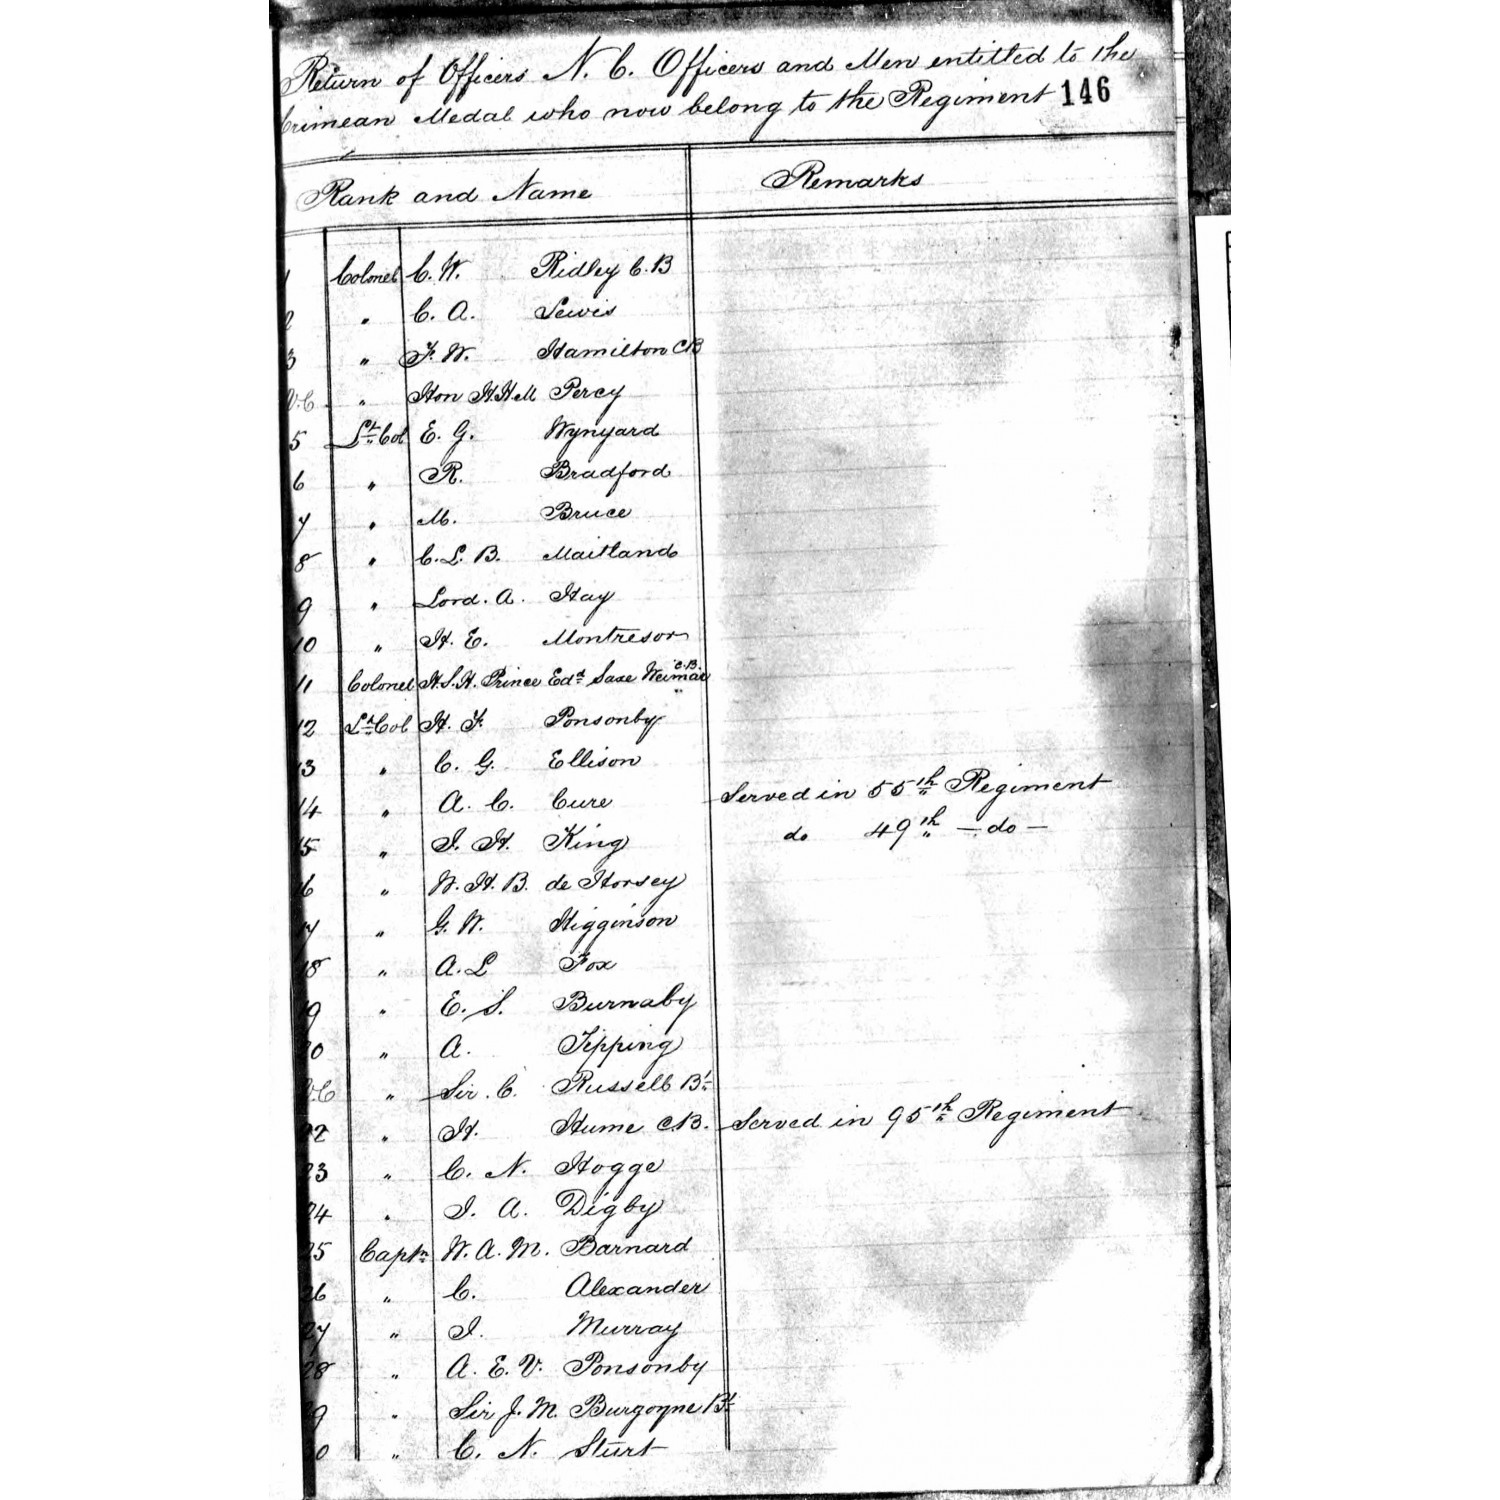 Return of Officers N. C. Officers and Men entitled to the
Crimean Medal who now belong to the Regiment 146
Rank and Name Remarks
1 Colonel C. W. Ridley C.B
2 " C. A. Lewis
3 " F. W. Hamilton CB
V.C " Hon H.H.M Percy
5 Lt Col E. G. Wynyard
6 " R. Bradford
7 " M. Bruce
8 " C. L. B. Maitland
9 " Lord. A. Hay
10 " H. E. Montresor
11 Colonel H.S.H. Prince Edd Saxe Weimar C.B.
12 Lt Col H. F. Ponsonby
13 " C. G. Ellison
14 " A. C. Cure Served in 55th Regiment
15 " J. H. King do 49th - do -
16 " W. H. B. de Horsey
17 " G. W. Higginson
18 " A. L Fox
19 " E. S. Burnaby
20 " A. Tipping
V.C " Sir. C. Russell Bt
22 " H. Hume C.B. Served in 95th Regiment
23 " C. N. Hogge
24 " J. A. Digby
25 Captn W. A. M. Barnard
26 " C. Alexander
27 " J. Murray
28 " A. E. V. Ponsonby
29 " Sir J. M. Burgoyne Bt
30 " C. N. Sturt